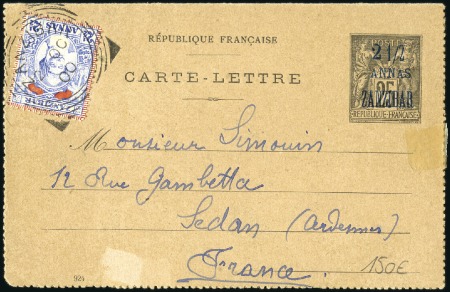 RÉPUBLIQUE FRANÇAISE
CARTE-LETTRE
2 1/2
ANNAS
ZANZIBAR
25
RÉPUBLIQUE FRANÇAISE
Monsieur Simouin
12 Rue Gambetta
Sedan (Ardennes)
France
924
150€